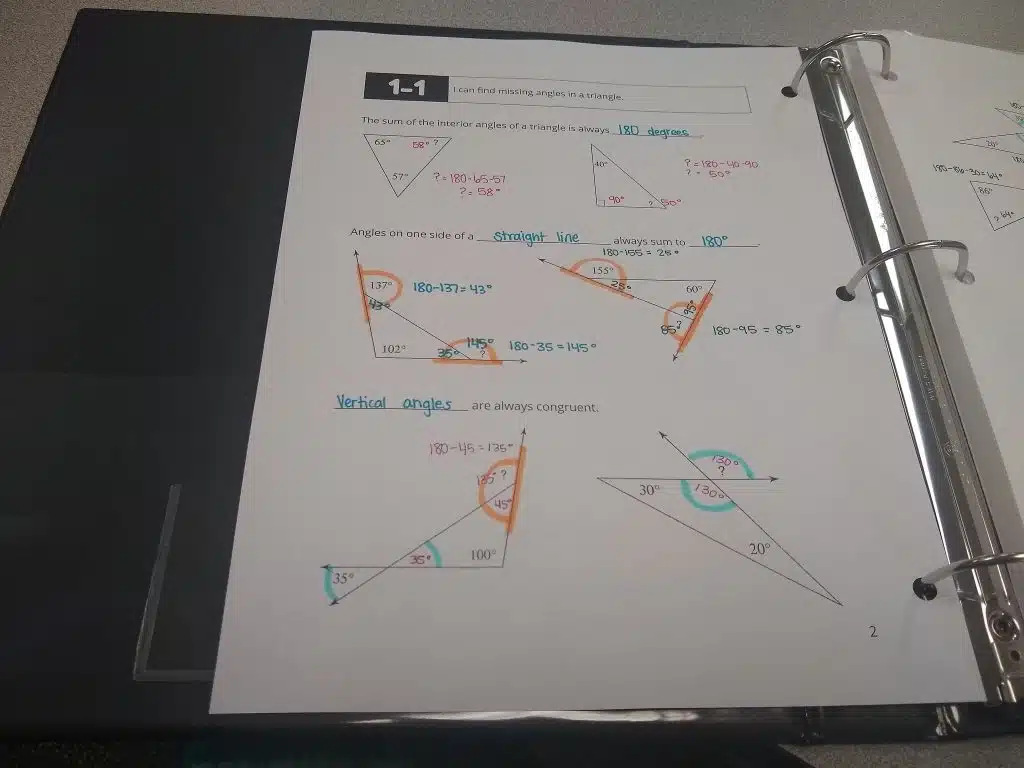 1-1 I can find missing angles in a triangle.
The sum of the interior angles of a triangle is always 180 degrees
65° 58° ?
57°
? = 180-65-57
? = 58°
40°
90° ? 50°
? = 180-40-90
? = 50°
Angles on one side of a straight line always sum to 180°
137°
43°
180-137=43°
102° 35° 145° ?
180-35=145°
180-155 = 25°
155°
25°
60°
95°
85° ?
180-95 = 85°
Vertical angles are always congruent.
180-45=135°
135° ?
45°
35° 100°
35°
130°
?
30° 130°
20°
2
20°
180-86-30=64°
86°
? 64°